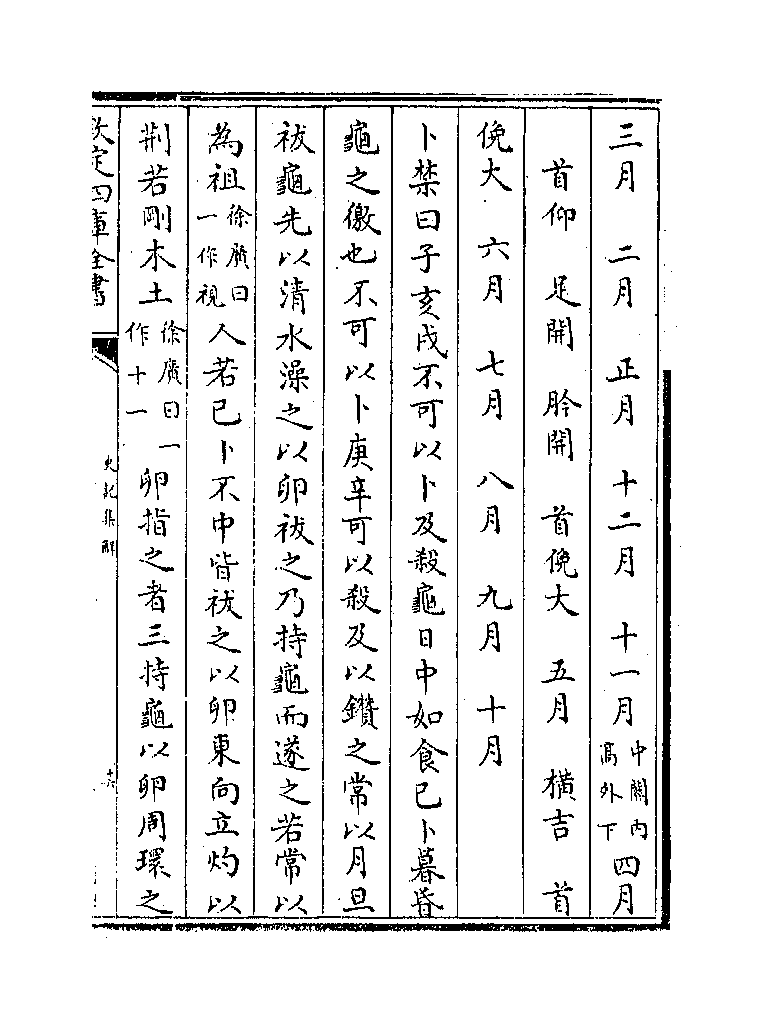 三月 二月 正月 十二月 十一月中關內高外下四月
首仰 足開 肣開 首俛大 五月 橫吉 首
俛大 六月 七月 八月 九月 十月
卜禁曰子亥戌不可以卜及殺龜日中如食已卜暮昏
龜之徼也不可以卜庚辛可以殺及以鑽之常以月旦
祓龜先以清水澡之以卵祓之乃持龜而遂之若常以
為祖徐廣曰一作視人若已卜不中皆祓之以卵東向立灼以
荆若剛木土徐廣曰一作十一卵指之者三持龜以卵周環之
欽定四庫全書
史記集解
十六